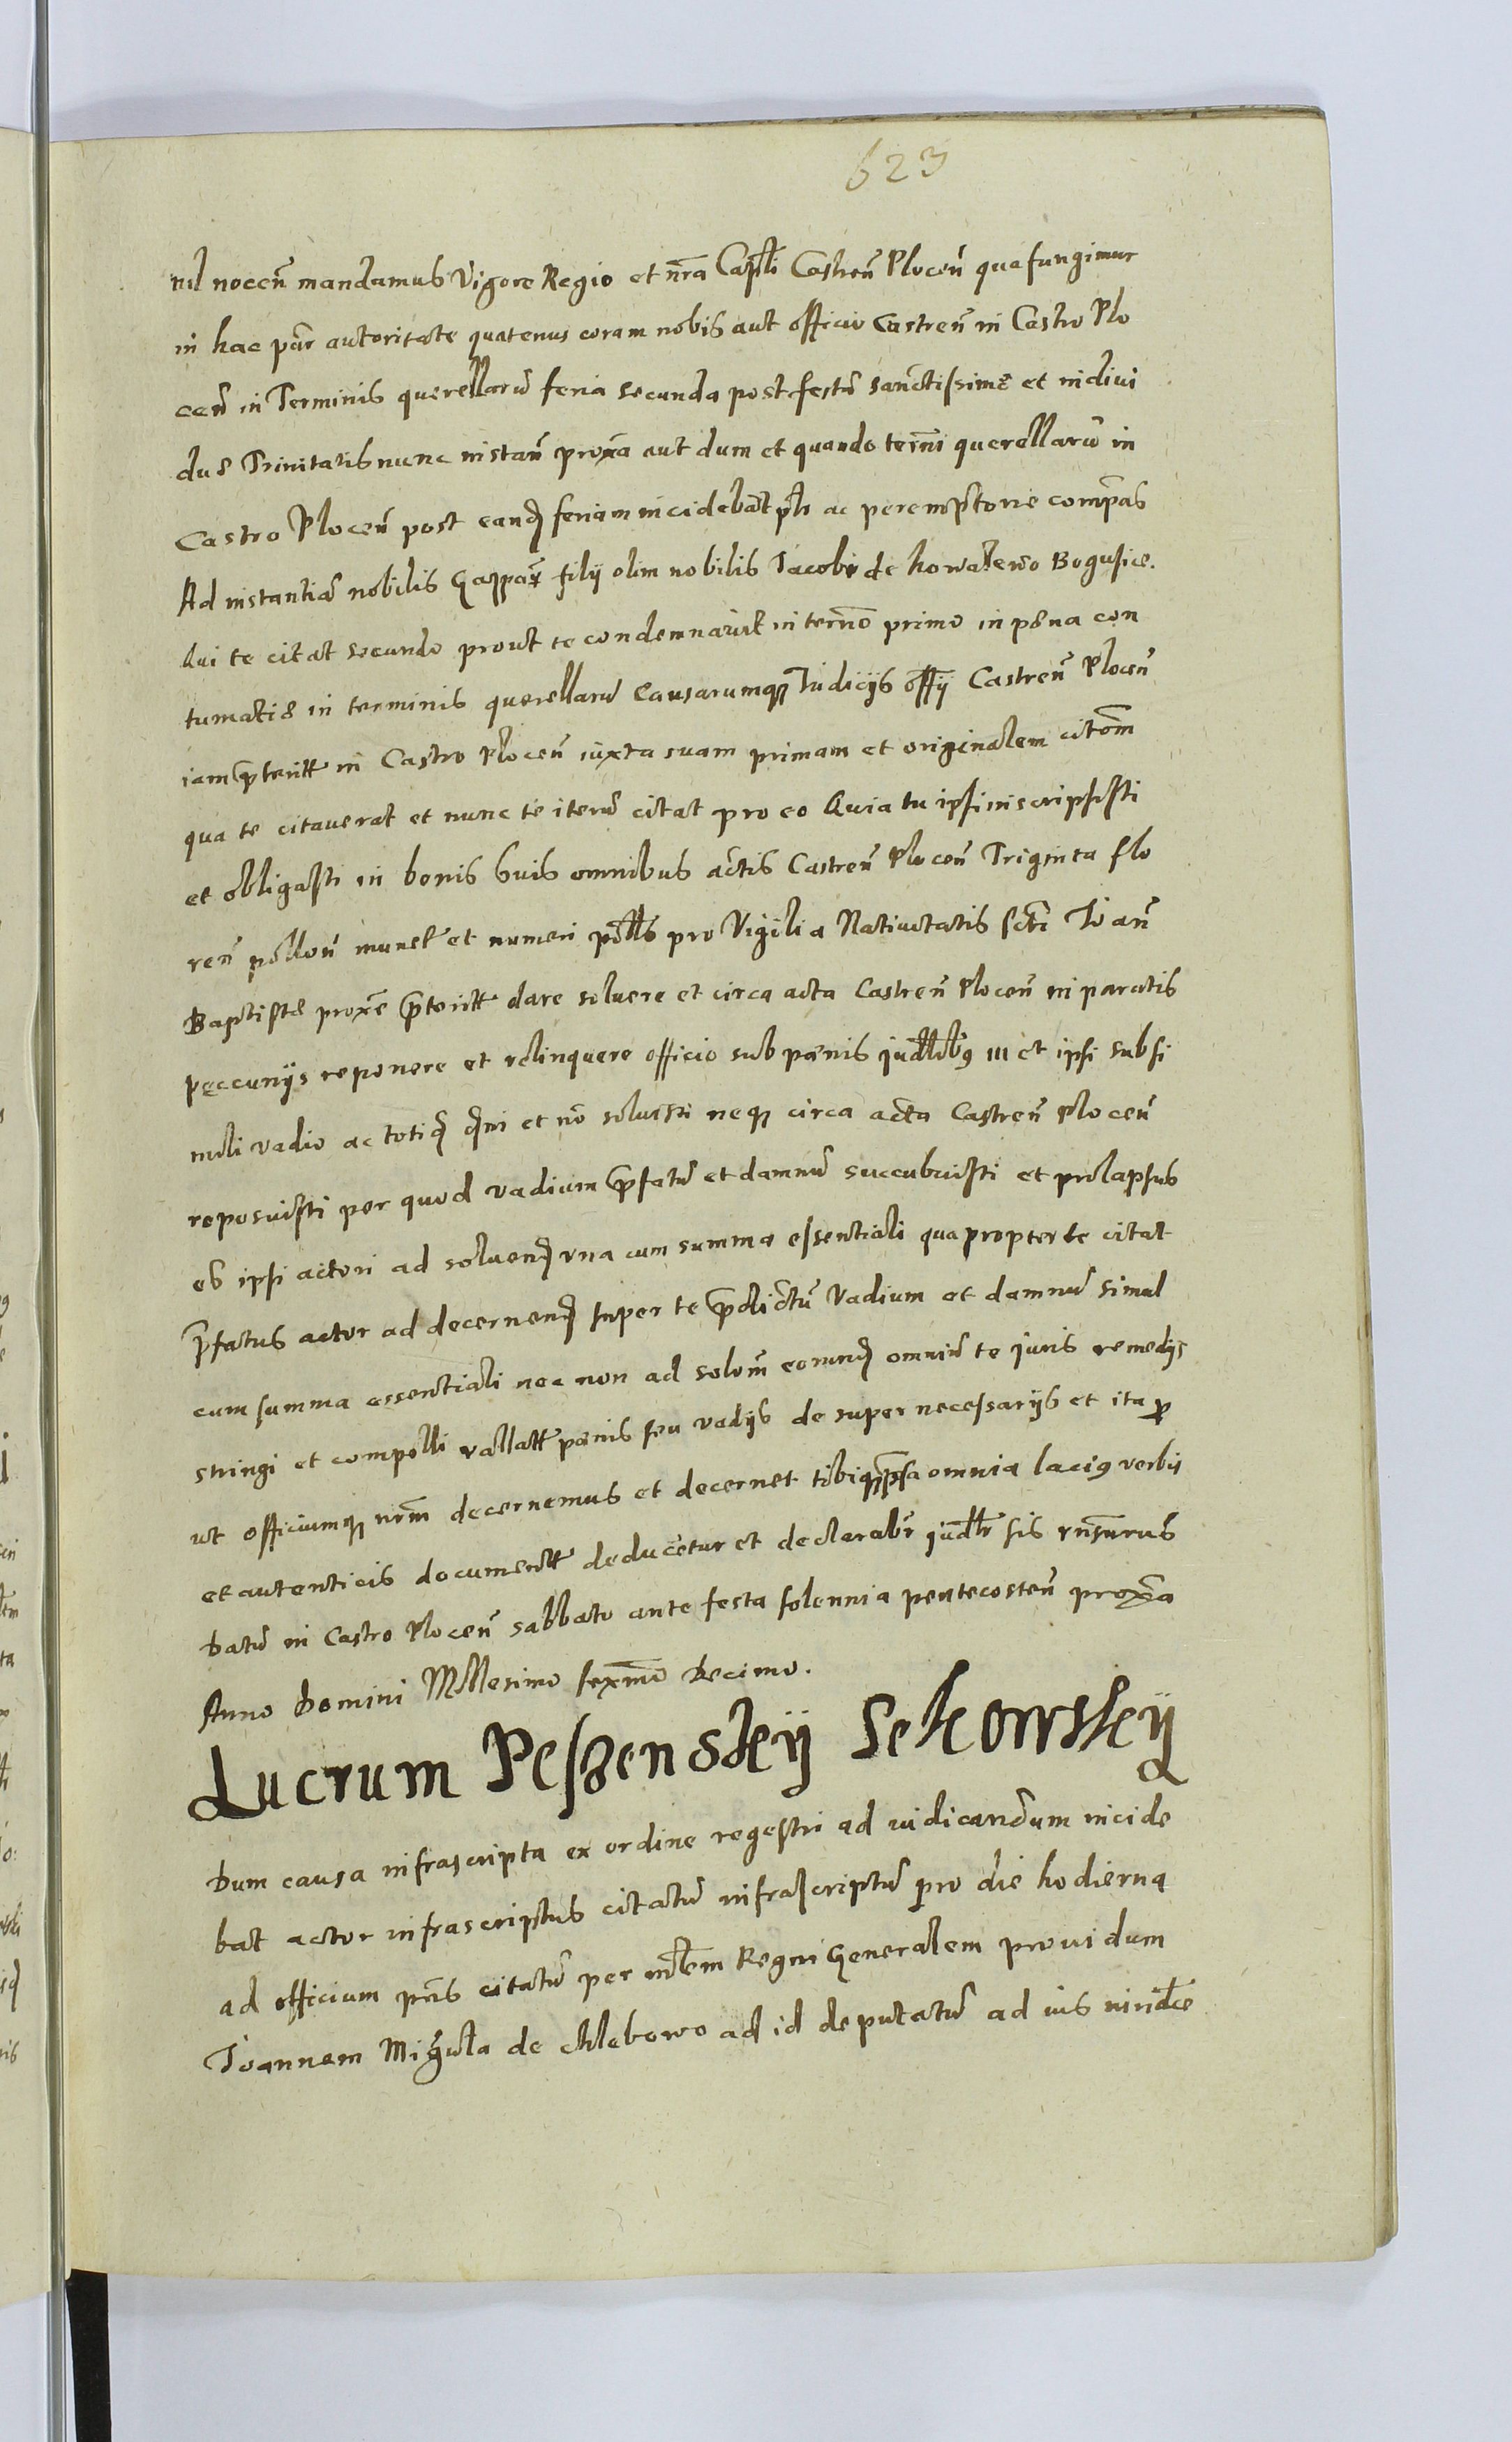 623
nil nocen̄ mandamus Vigore Regio et nr̄a Capt̄li Castren̄ Plocen̄ qua fungimur
in hac par̄ autoritate quatenus coram nobis aut officio Castren̄ in Castro Plo
cen̄ in Terminis querellarū feria secunda post festū sanctissime et indiui
due Trinitatis nunc instan̄ proxa aut dum et quando term̄i querellarū in
Castro Plocen̄ post eand feriam incidebāt ac peremptorie compas
Ad instantiā nobilis Gaspar̄ filij olim nobilis Jacobi de kowalewo Bogusice.
Qui te citat secundo prout te condemnauit in termo primo in pena con
tumatie in terminis querellarū Causarumq Judicijs offij Castren̄ Plocen̄
iam pteritt in Castro Plocen̄ iuxta suam primam et originalem citom̄
qua te citauerat et nunc te iterū citat pro eo Quia tu ipsi inscripsisti
et obligasti in bonis suis omnibus actis Castren̄ Plocen̄ Triginta flo
ren̄ pollon̄ munet et numeri pollis pro Vigilia Natiuitatis scti Joan̄
Baptiste proxe pteritt dare soluere et circa acta Castren̄ Plocen̄ in paratis
peccunijs reponere et relinquere officio sub pœnis iudlibus III et ipsi sub si
mili vadio ac totiq dni et nō soluisti neq circa acta Castren̄ Plocen̄
reposuisti per quod vadium pfatū et damnū succubuisti et prolapsus
es ipsi actori ad soluend vna cum summa essentiali qua propter te citat
pfatus actor ad decernend super te pdictū Vadium et damnū simul
cum summa essentiali nec non ad solom̄ eorund omniū te juris remedijs
stringi et compelli vallatt pœnis seu vadijs de super necessarijs et ita p
ut officiumq nrm̄ decernemus et decernet tibiq pfsa omnia lacius verbis
et autenticis documentt deducetur et declarabr̄ iudlr sis rn̄surus
Datū in Castro Plocen̄ sabbato ante festa solennia pentecosten̄ proxa
Anno Domini Millesimo sexmo Decimo.
Lucrum Peszenskij Sekowskij
Dum causa infrascripta ex ordine regestri ad iudicandum incide
bat actor infrascriptus citatū infrascriptū pro die hodierna
ad officium pns citatū per mlem Regni Generalem prouidum
Joannem Migula de Chlebowo ad id deputatū ad ius